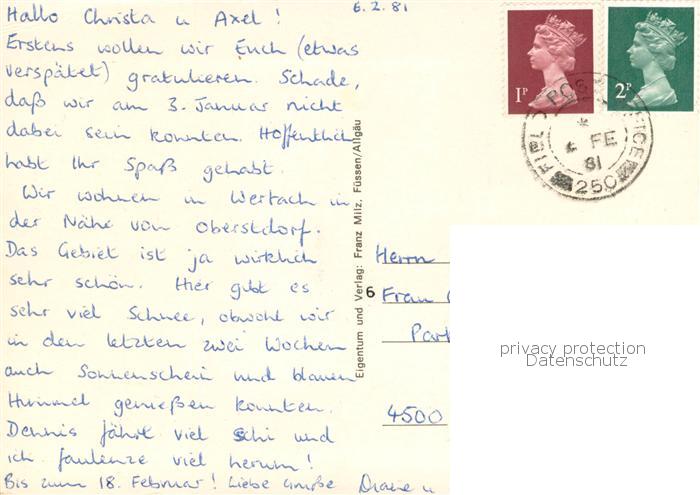 Hallo Christa u Axel!
6.2.81
Erstens wollen wir Euch (etwas
verspätet) gratulieren. Schade,
daß wir am 3. Januar nicht
dabei sein konnten. Hoffentlich
habt Ihr Spaß gehabt.
Wir wohnen in Wertach in
der Nähe von Oberstdorf.
Das Gebiet ist ja wirklich
sehr schön. Hier gibt es
sehr viel Schnee, obwohl wir
in den letzten zwei Wochen
auch Sonnenschein und blauen
Himmel genießen konnten.
Dennis fährt viel Schi und
ich faulenze viel herum!
Bis zum 18. Februar! Liebe Grüße Diane u
Eigentum und Verlag: Franz Milz, Füssen/Allgäu
6
1P
2P
FIELD POST OFFICE
FE
81
250
Herrn
Frau
Park
4500
privacy protection
Datenschutz